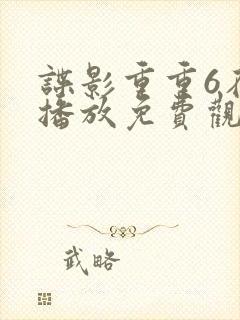 諜影重重6
播放免費觀
武略